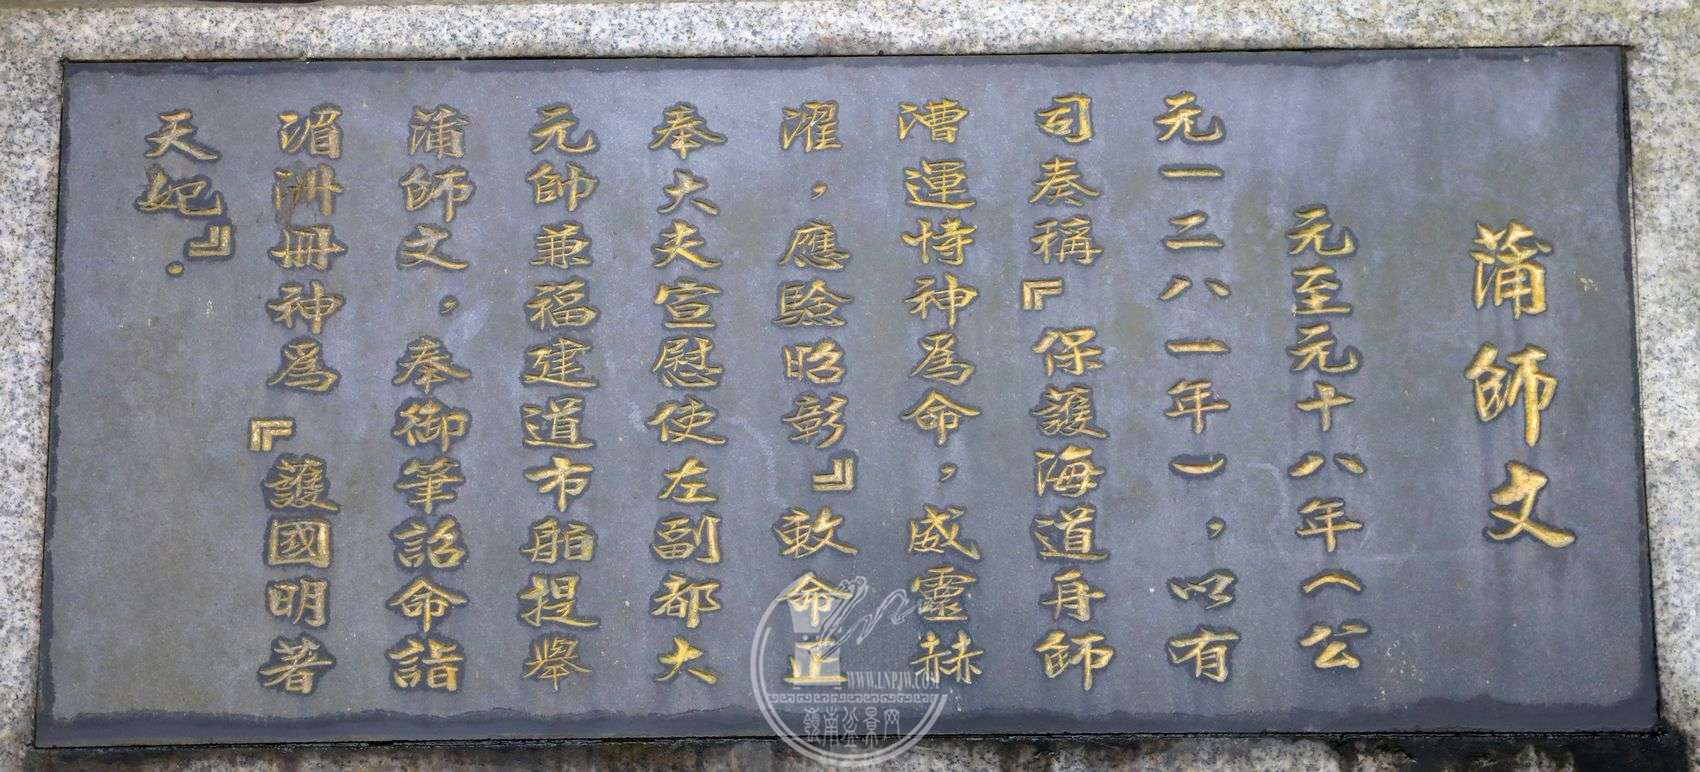 蒲師文
元至元十八年（公
元一二八一年），以有
司奏稱『保護海道舟師
漕運恃神爲命，威靈赫
濯，應驗昭彰』敕命正
奉大夫宣慰使左副都大
元帥兼福建道市舶提舉
蒲師文，奉御筆詔命詣
湄洲冊神爲『護國明著
天妃』.
WWW.LNPJW.COM
嶺南盆景网